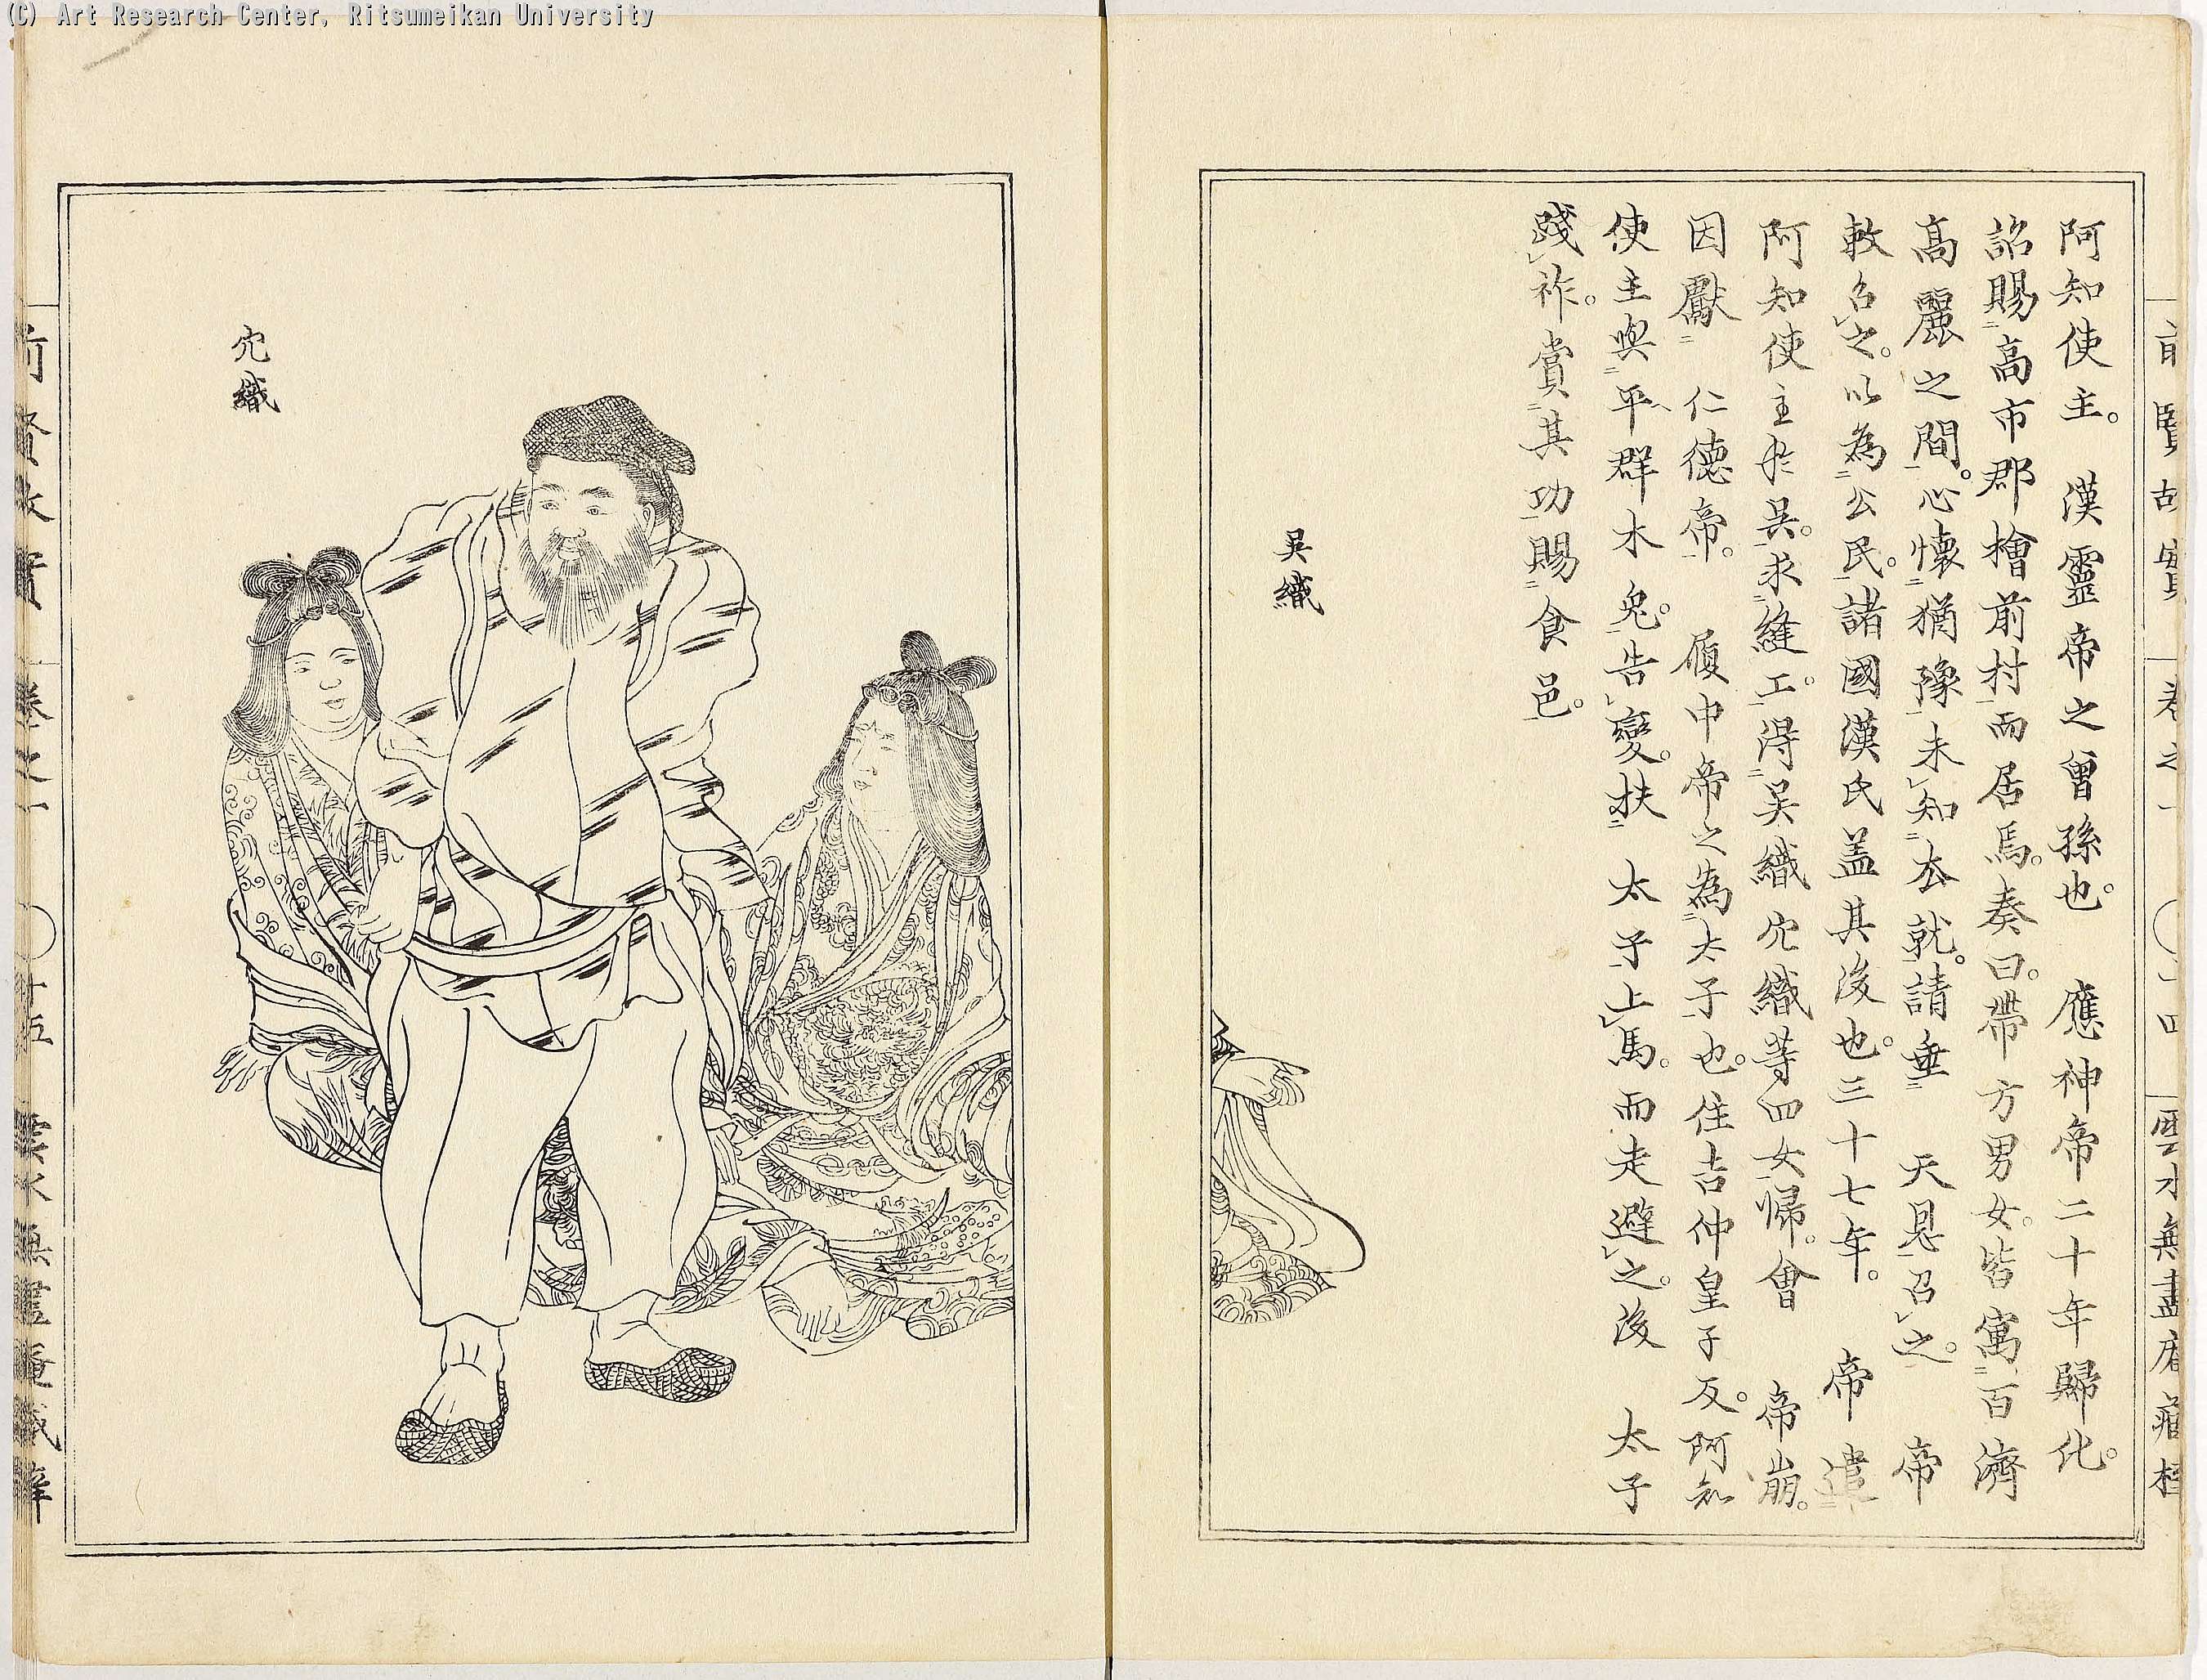 (C) Art Research Center, Ritsumeikan University
阿知使主。漢靈帝之曾孫也。應神帝二十年歸化。
詔賜高市郡檜前村而居焉。奏曰。帶方男女。皆寓百濟
高麗之間。心懷猶豫未知去就。請垂天恩召之。帝
敕召之。以為公民。諸國漢氏蓋其後也。三十七年。帝遣
阿知使主於吳。求縫工。得吳織穴織等四女歸。會帝崩。
因獻仁德帝。履中帝之為太子也。住吉仲皇子反。阿知
使主與平群木兔。告變。扶太子上馬。而走避之。後太子
踐祚。賞其功賜食邑。
吳織
穴織
前賢故實
卷之一
十四
雲水無盡庵藏梓
前賢故實
卷之一
十五
雲水無盡庵藏梓